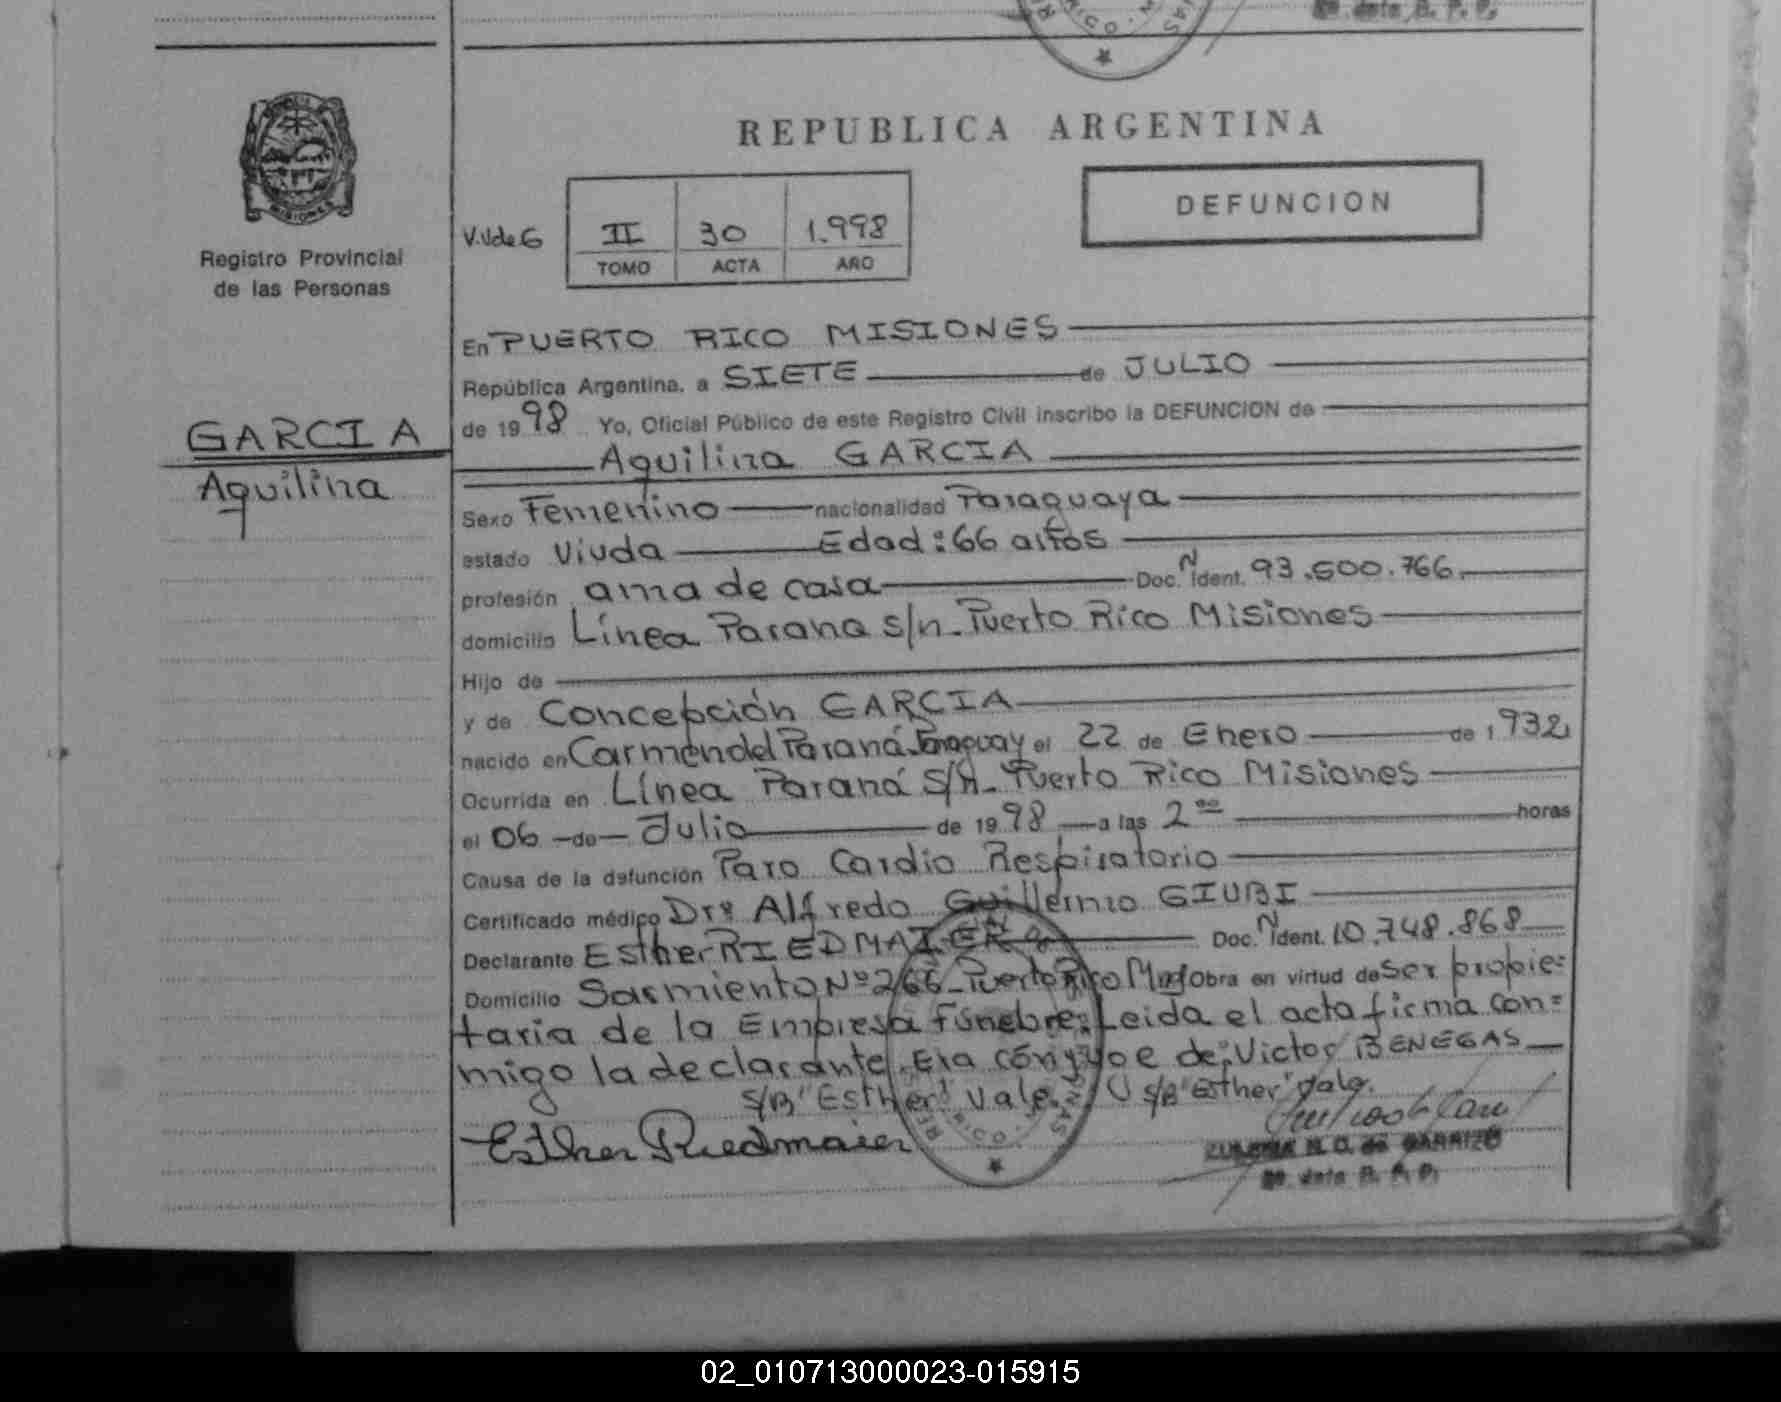 REPUBLICA ARGENTINA
MISIONES
Registro Provincial
de las Personas
V.Vde G
II 30 1.998
TOMO ACTA AÑO
DEFUNCION
GARCIA
Aquilina
En PUERTO RICO MISIONES
República Argentina, a SIETE de JULIO
de 1998 Yo, Oficial Público de este Registro Civil inscribo la DEFUNCION de
Aquilina GARCIA
Sexo Femenino nacionalidad Paraguaya
estado Viuda Edad: 66 años
profesión ama de casa Doc. N Ident. 93.600.766.
domicilio Línea Parana s/n. Puerto Rico Misiones
Hijo de
y de Concepción GARCIA
nacido en Carmen del Paraná Paraguay el 22 de Enero de 1932
Ocurrida en Línea Paraná s/n. Puerto Rico Misiones
el 06 de Julio de 1998 a las 2 horas
Causa de la defunción Paro Cardio Respiratorio
Certificado médico Dr. Alfredo Guillermo GIUBI
Declarante Esther RIEDMAIER Doc. N Ident. 10.748.868
Domicilio Sarmiento Nº 266 - Puerto Rico Obra en virtud de ser propie=
taria de la Empresa Fúnebre. Leida el acta firma con=
migo la declarante. Era cónyuge de: Victor BENEGAS
S/B "Esther" Vale. S/B "Esther" Vale.
Esther Riedmaier
02_010713000023-015915